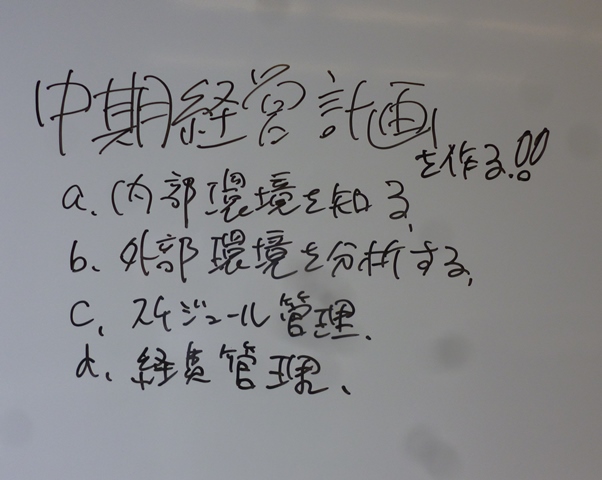 中期経営計画
を作る!!
a. 内部環境を知る
b. 外部環境を分析する,
c, スケジュール管理.
d. 経費管理、